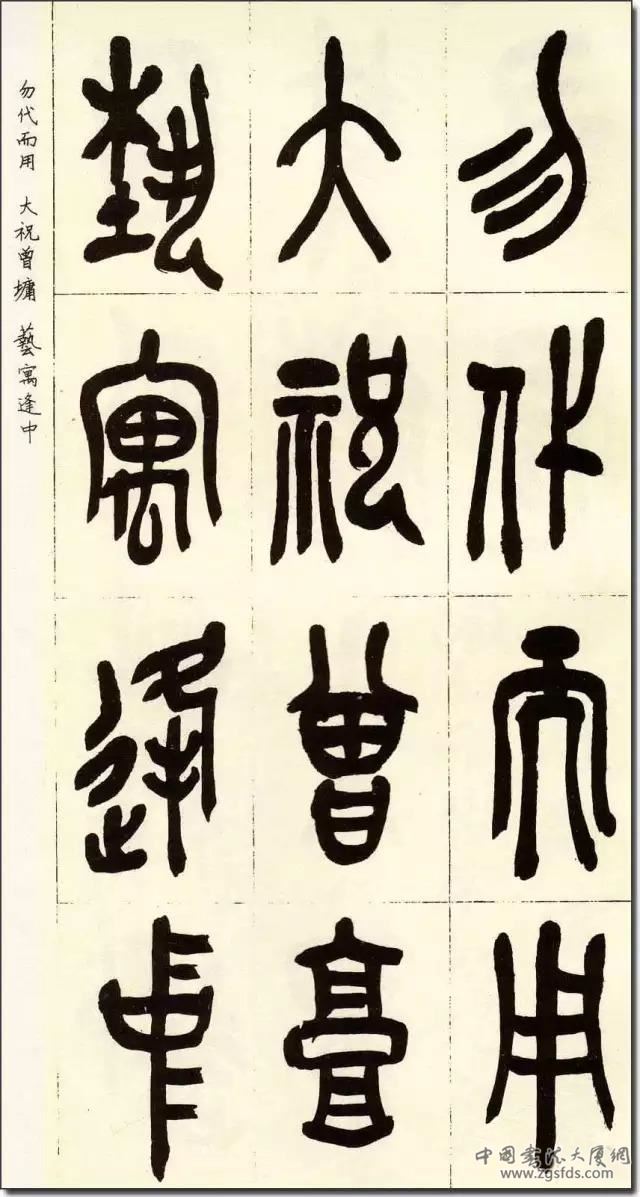 勿代而用
大祝曾墉
藝寓逢中
勿代而用 大祝曾墉 藝寓逢中
中国书法大厦網
www.zgsfds.com